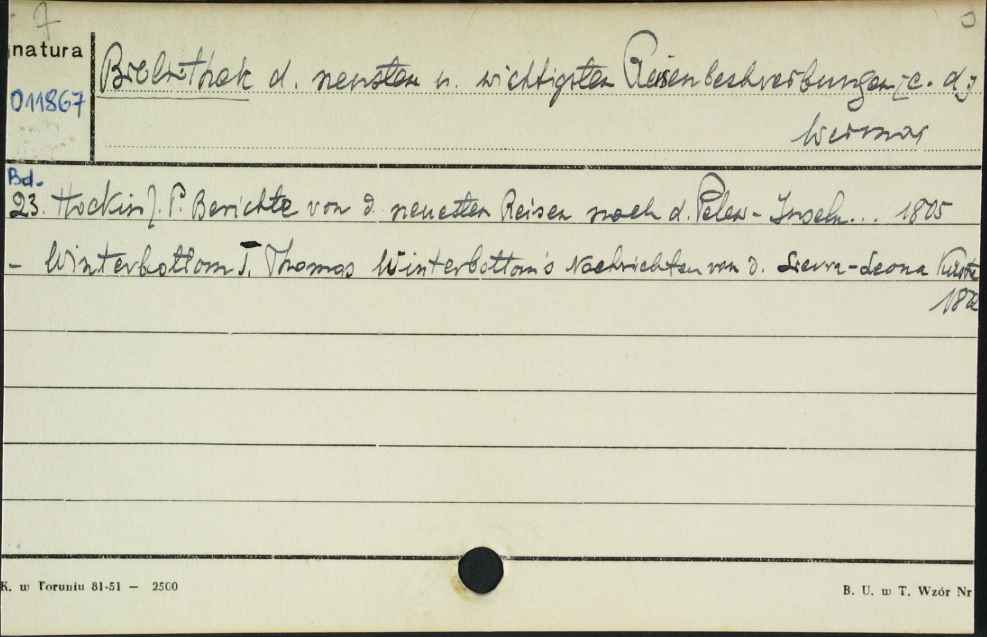 7
natura
Bibliothek d. neusten u. wichtigsten Reisenbeschreibungen [c. d.]
011867
Weimar
Bd.
23. Hockin J. P. Berichte von d. neuesten Reisen nach d. Pelew-Inseln... 1805
- Winterbottom T. Thomas Winterbottom's Nachrichten von d. Sierra-Leona Küste
K. w Toruniu 81-51 — 2500
B. U. w T. Wzór Nr